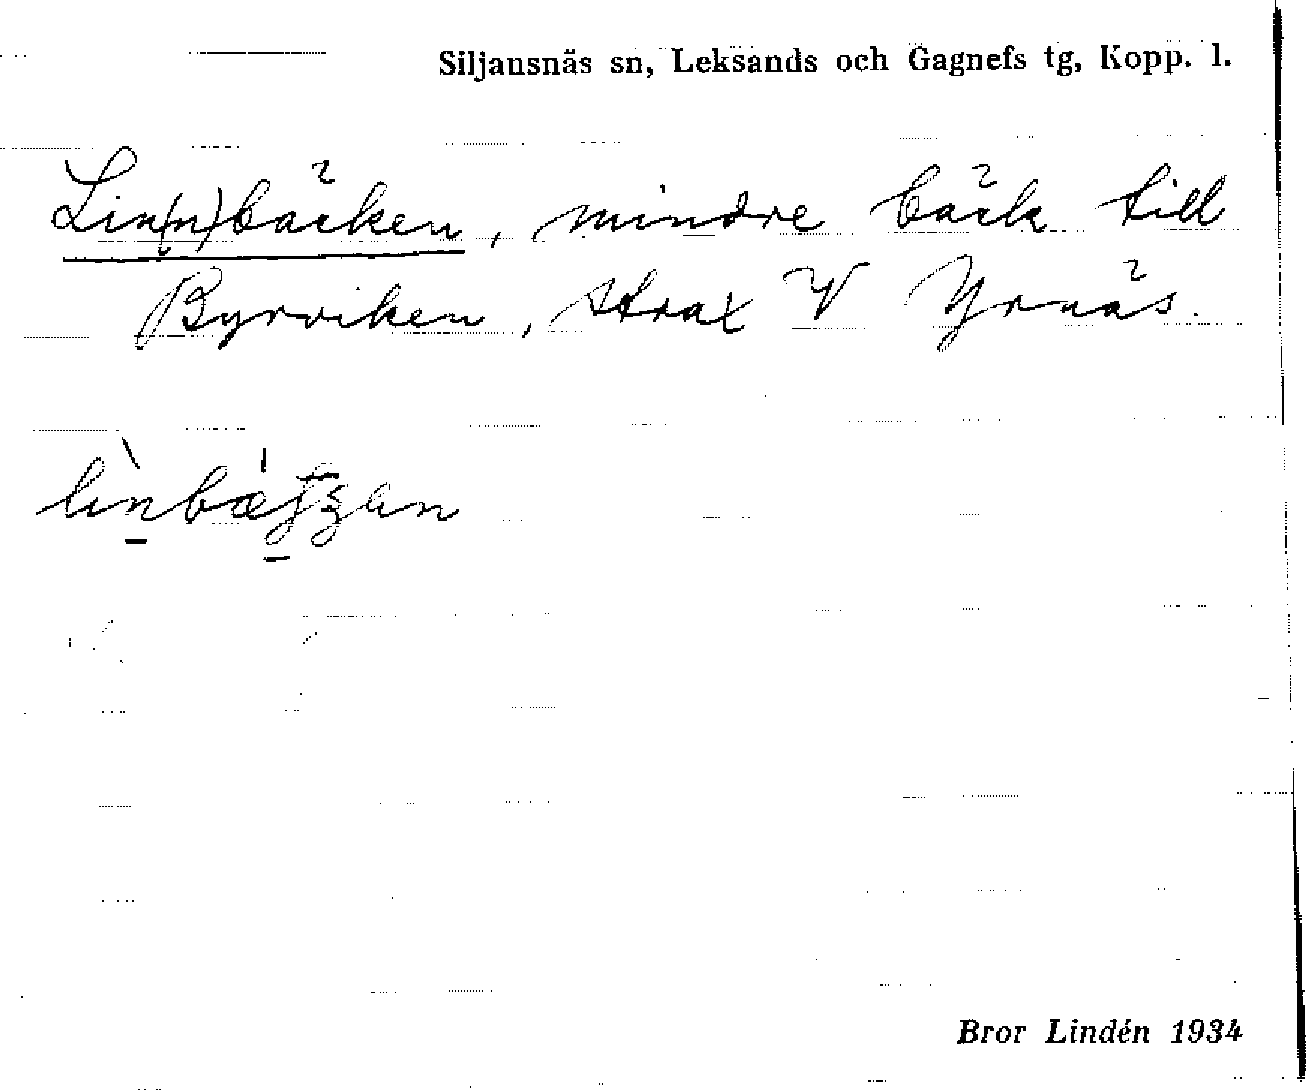 Siljansnäs sn, Leksands och Gagnefs tg, Kopp. l.
Lin(n)bäcken, mindre bäck till
Byrviken, strax V Yrnäs.
Bror Lindén 1934